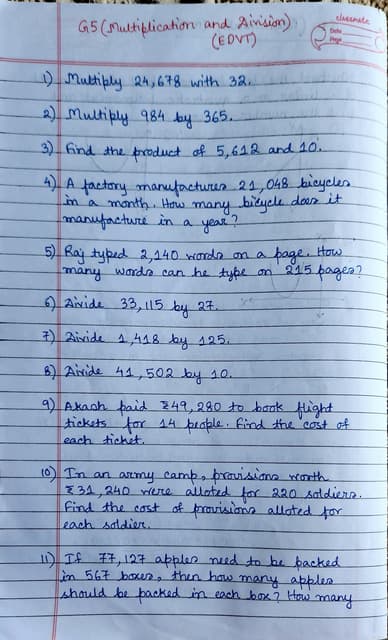 G5 (Multiplication and Division)
(EDVT)
classmate
Date
Page
1) Multiply 24,678 with 32.
2) Multiply 984 by 365.
3) Find the product of 5,612 and 10.
4) A factory manufactures 21,048 bicycles
in a month. How many bicycle does it
manufacture in a year?
5) Raj typed 2,140 words on a page. How
many words can he type on 215 pages?
6) Divide 33,115 by 27.
7) Divide 1,418 by 125.
8) Divide 41,502 by 10.
9) Akash paid ₹49,280 to book flight
tickets for 14 people. Find the cost of
each ticket.
10) In an army camp, provisions worth
₹31,240 were alloted for 220 soldiers.
Find the cost of provisions alloted for
each soldier.
11) If 77,127 apples need to be packed
in 567 boxes, then how many apples
should be packed in each box? How many